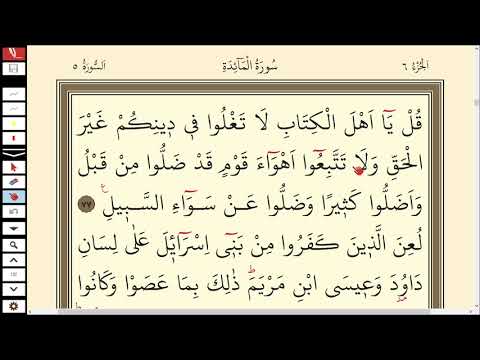 الجزء ٦ سورة المائدة السورة ٥
قُلْ يَٓا اَهْلَ الْكِتَابِ لَا تَغْلُوا ف۪ي د۪ينِكُمْ غَيْرَ
الْحَقِّ وَلَا تَتَّبِعُٓوا اَهْوَٓاءَ قَوْمٍ قَدْ ضَلُّوا مِنْ قَبْلُ
وَاَضَلُّوا كَث۪يرًا وَضَلُّوا عَنْ سَوَٓاءِ السَّب۪يلِ ۟ ٧٧
لُعِنَ الَّذ۪ينَ كَفَرُوا مِنْ بَن۪ٓي اِسْرَٓائ۪لَ عَلٰى لِسَانِ
دَاوُ۫دَ وَع۪يسَى ابْنِ مَرْيَمَۜ ذٰلِكَ بِمَا عَصَوْا وَكَانُوا